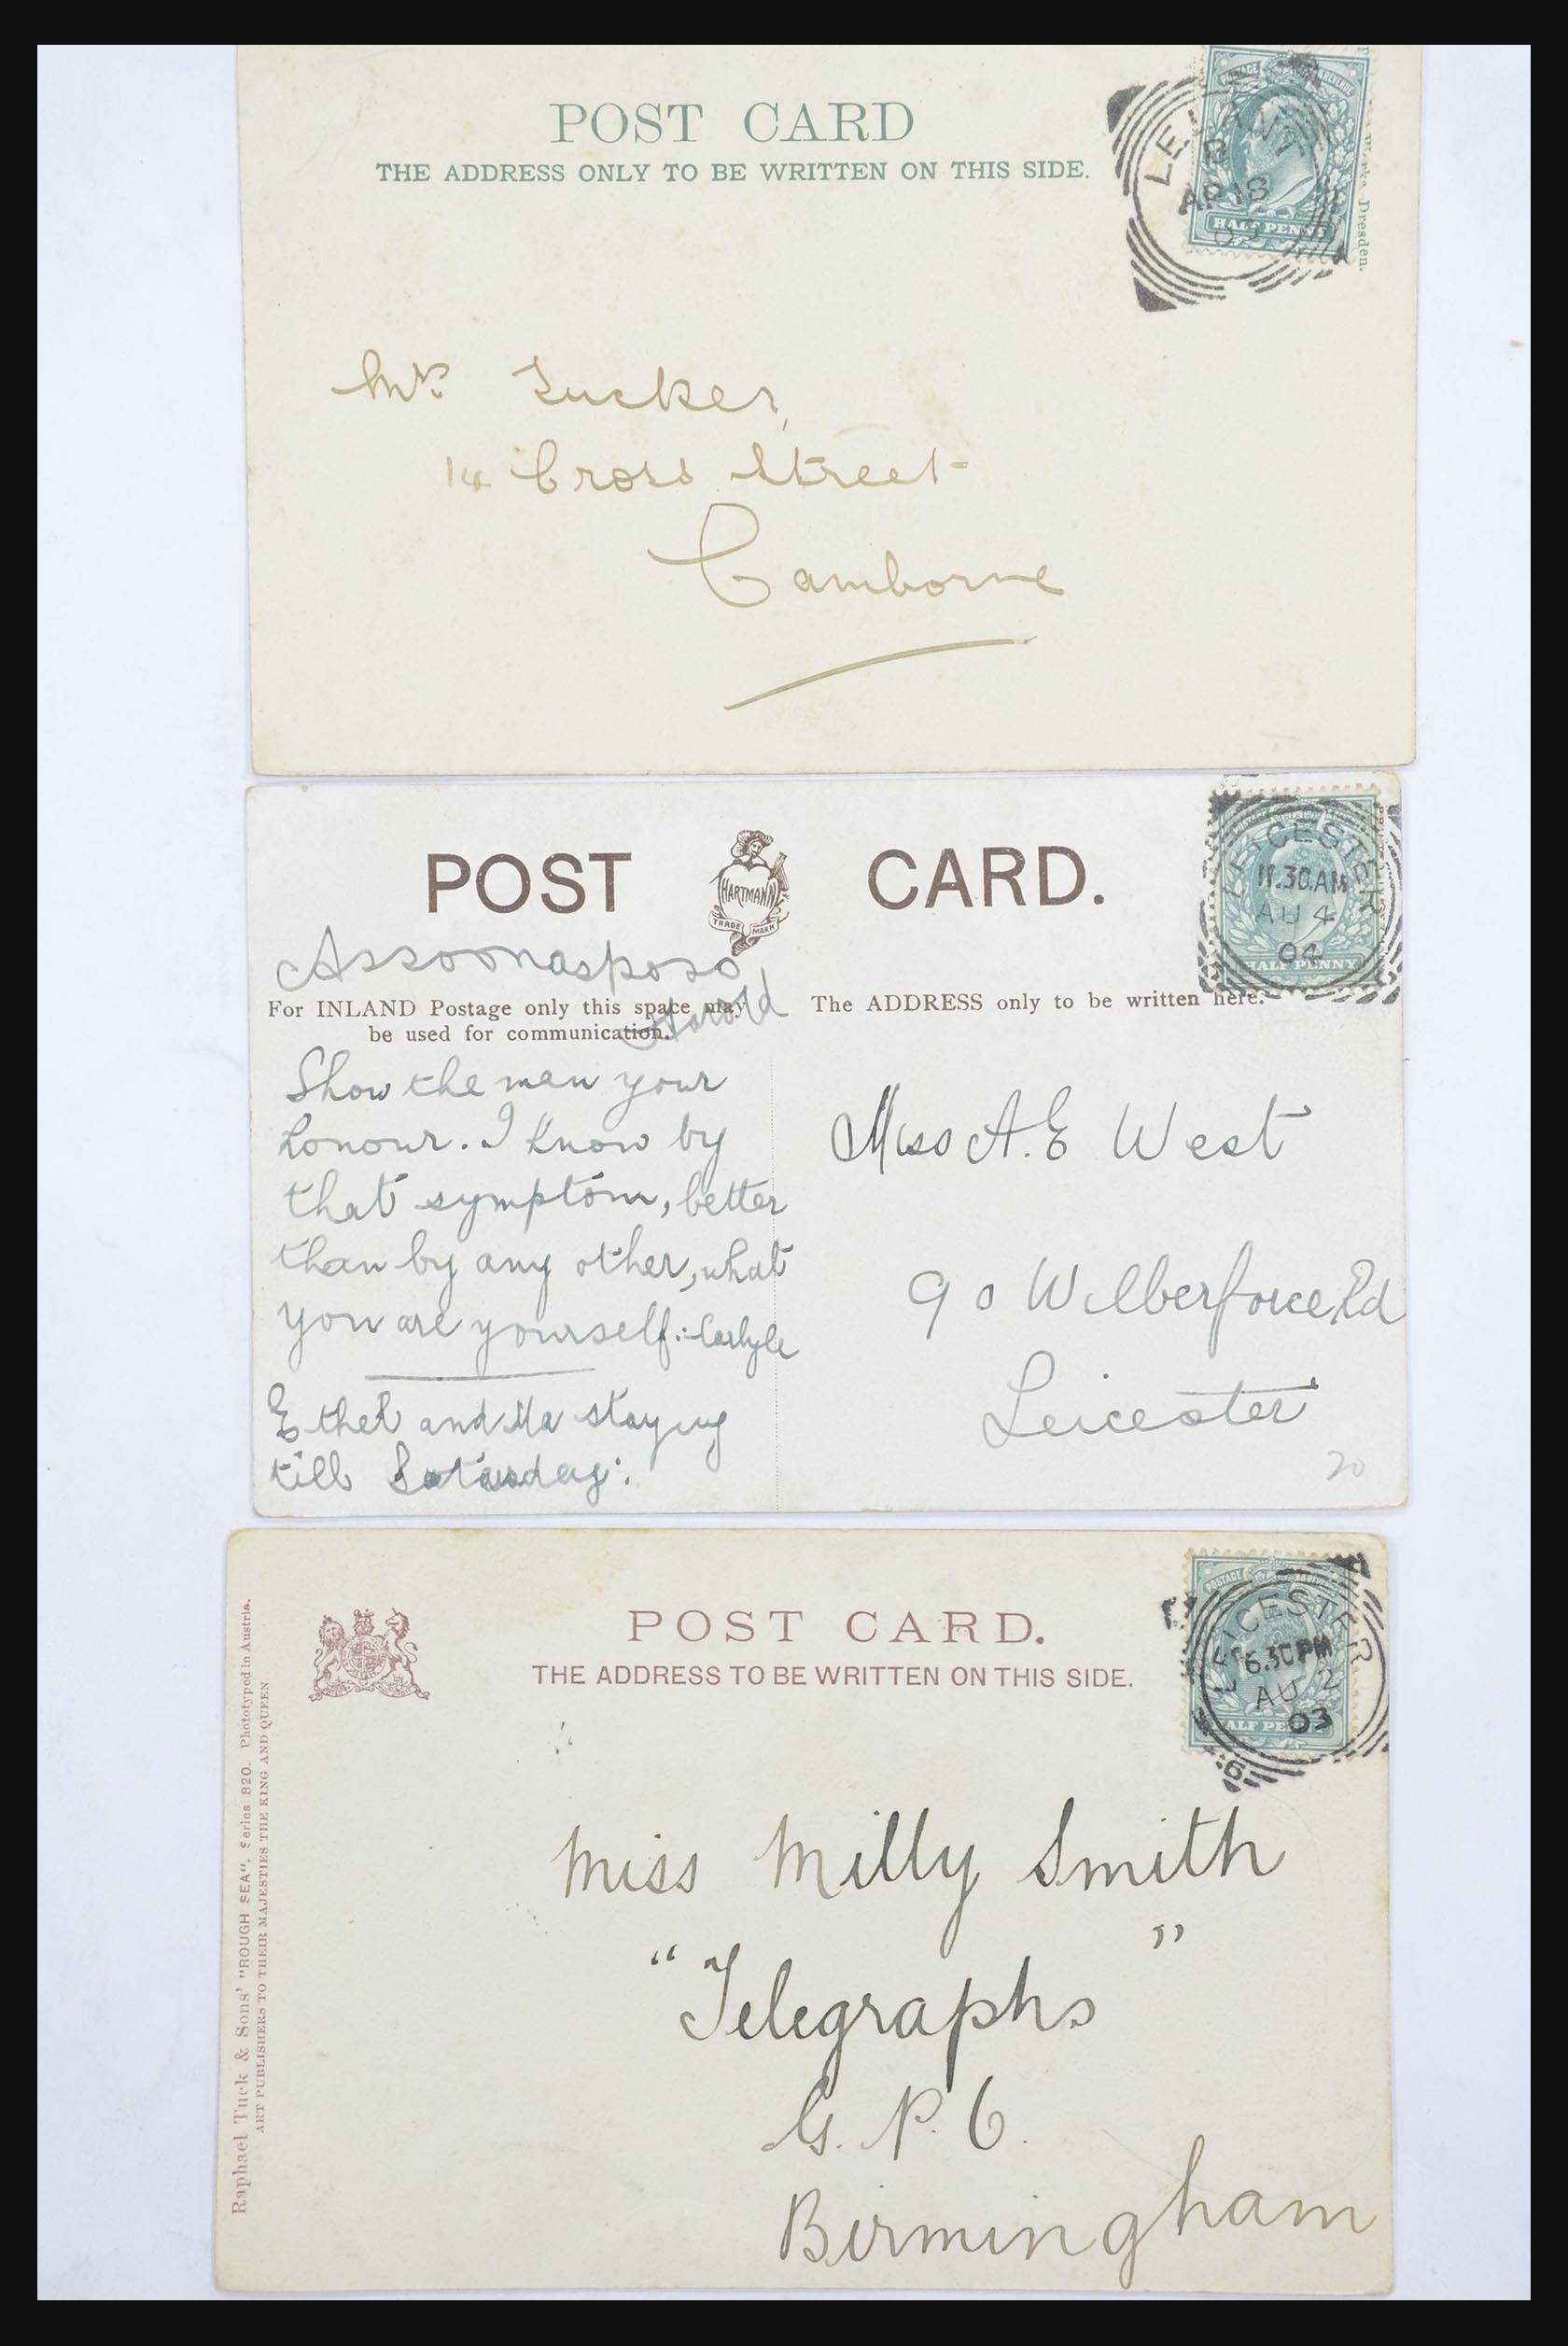 POST CARD
THE ADDRESS ONLY TO BE WRITTEN ON THIS SIDE.
LELANT
B
AP 18
03
HALF PENNY
Dresden.
Mrs Tucker,
14 Cross Street
Camborne
POST CARD.
HARTMANN
TRADE MARK
LEICESTER
11.30 AM
AU 4
04
HALF PENNY
Assoonasposs,
Harold
For INLAND Postage only this space may
be used for communication.
The ADDRESS only to be written here.
Show the man your
honour. I know by
that symptom, better
than by any other, what
you are yourself:- Carlyle
Ethel and Ma staying
till Saturday:.
Miss A. E West
90 Wilberforce Rd
Leicester
20
POST CARD.
THE ADDRESS TO BE WRITTEN ON THIS SIDE.
LEICESTER
6.30 PM
AU 2
03
HALF PE
Raphael Tuck & Sons' "ROUGH SEA". Series 820. Phototyped in Austria.
ART PUBLISHERS TO THEIR MAJESTIES THE KING AND QUEEN
Miss Milly Smith
"Telegraphs"
G. P. O.
Birmingham